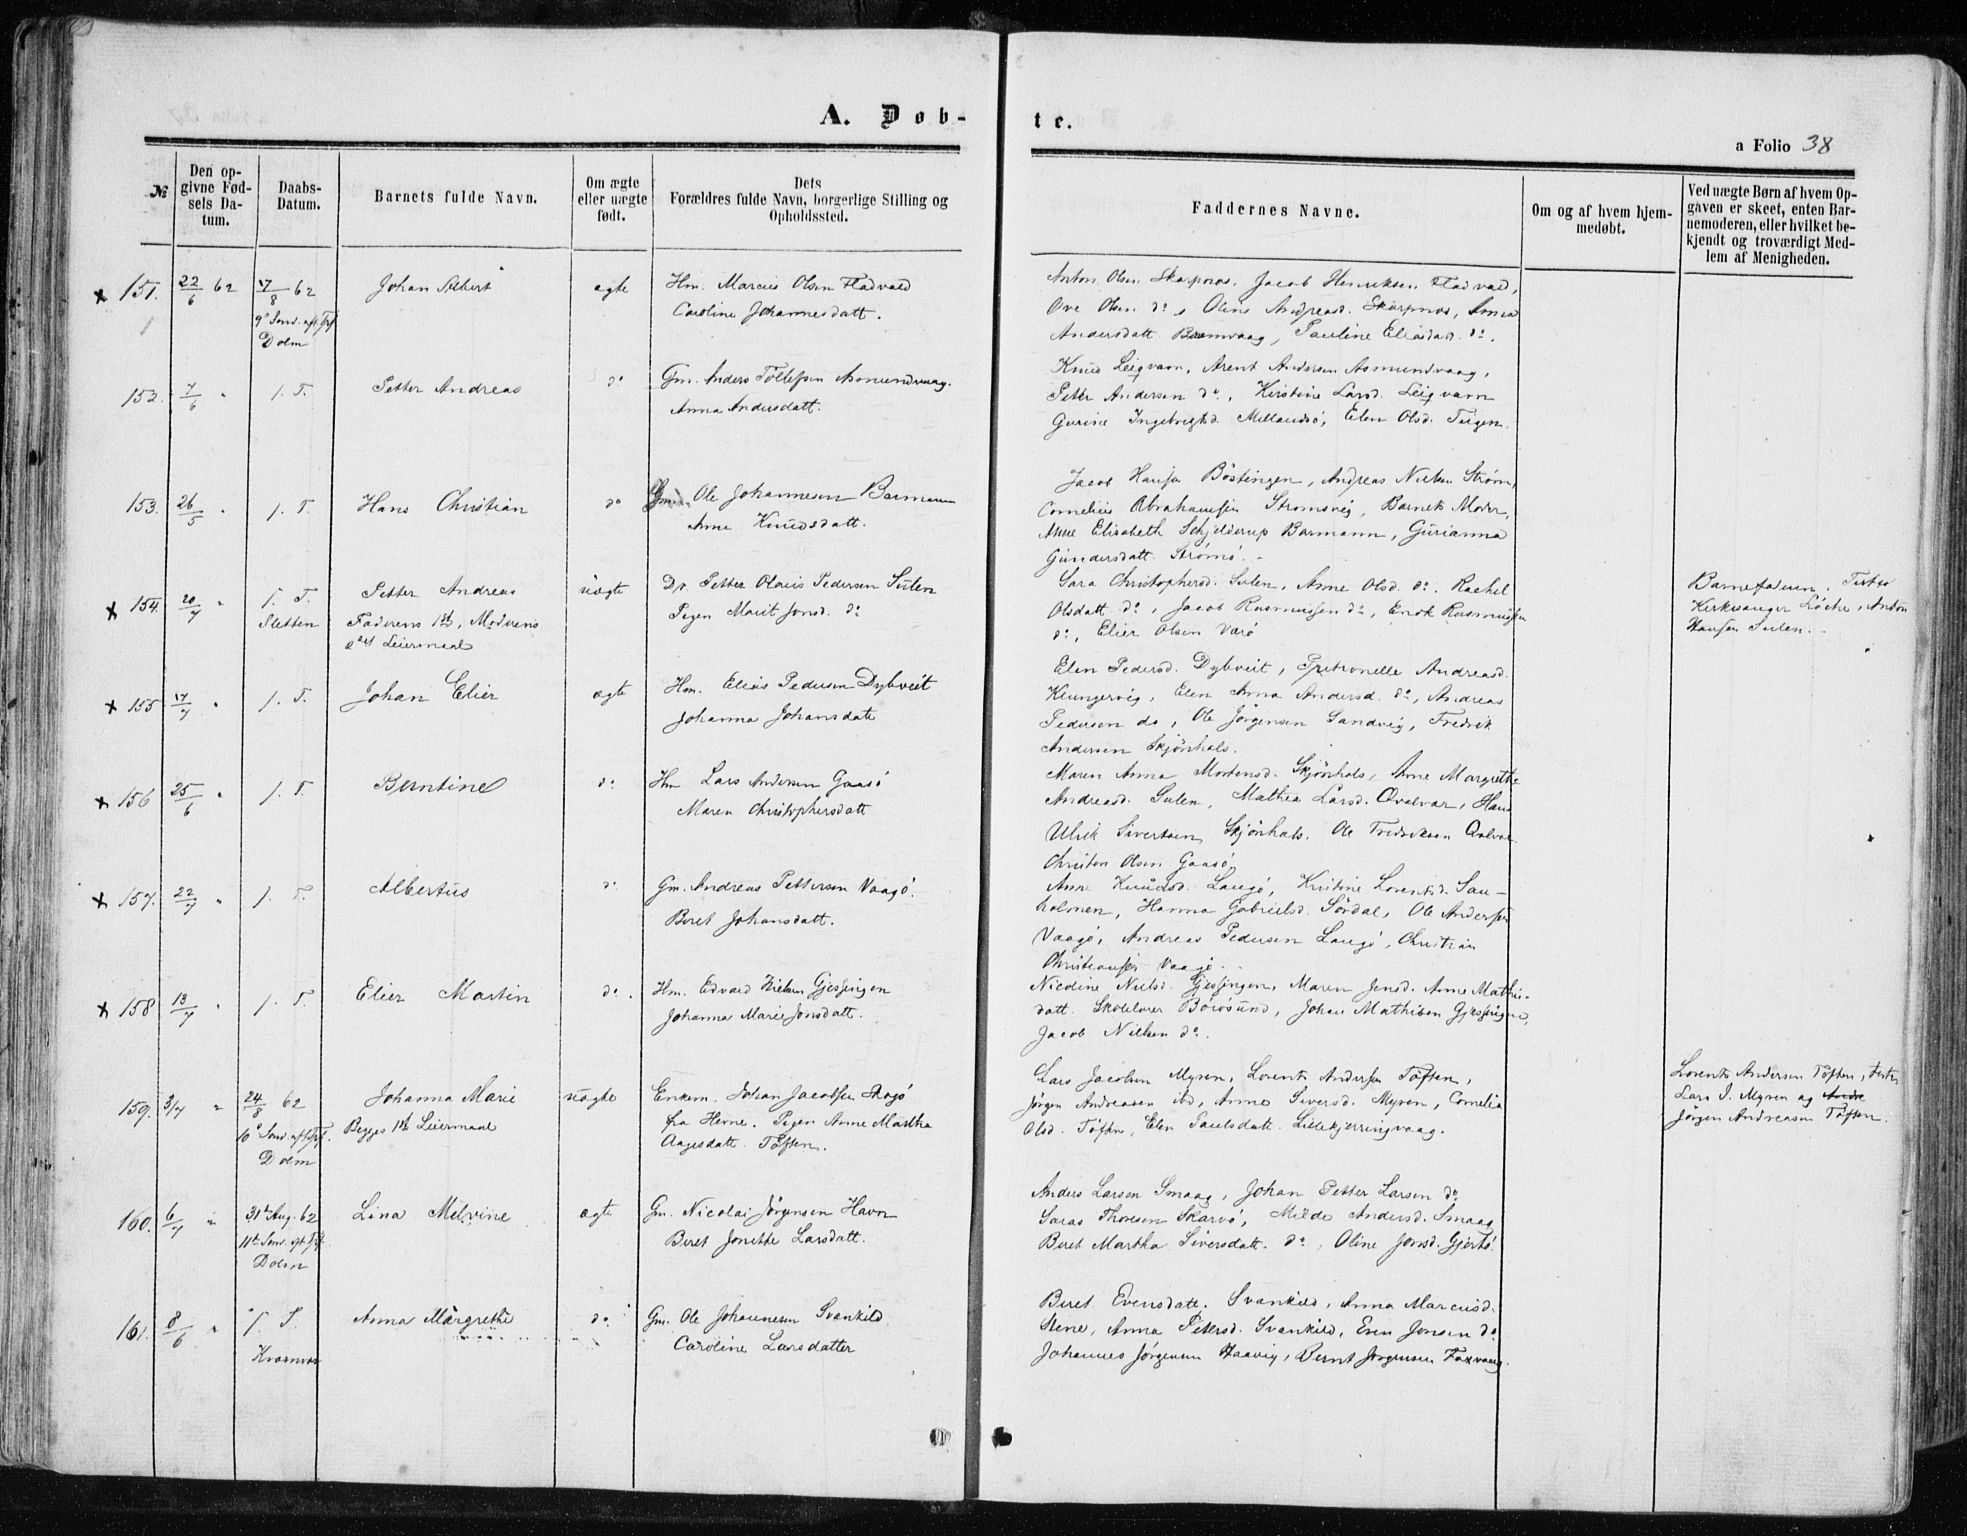 A. Døb-
te.
a Folio 38
№
Den op-
givne Fød-
sels Da-
tum.
Daabs-
Datum.
Barnets fulde Navn.
Om ægte
eller uægte
født.
Dets
Forældres fulde Navn, borgerlige Stilling og
Opholdssted.
Faddernes Navne.
Om og af hvem hjem-
medøbt.
Ved uægte Børn af hvem Op-
gaven er skeet, enten Bar-
nemoderen, eller hvilket be-
kjendt og troværdigt Med-
lem af Menigheden.
x 151. 22/6 62
17/8 62
9de Sønd. eft. Trf.
Dolm
Johan
ægte
Hm. Marcus Olsen Fladvald
Caroline Johannesdatt.
Anton Olsen Skarpnæs, Jacob Henriksen Fladvald,
Ove Olsen do, Oline Andreasd. Skarpnæs, Anna
Andersdatt Bremvaag, Pauline Eliasdatt do.
152. 7/6 "
f. T.
Petter Andreas
do
Gm. Anders Tollefsen Asmundvaag.
Anna Andersdatt.
Knud Leigvarn, Arent Andersen Asmundvaag,
Petter Andersen do, Kirstine Larsd. Leigvarn
Gurine Ingebrigtsd. Mellandsö, Elen Olsd.
153. 26/5
f. T.
Hans Christian
do
Gm. Ole Johannesen Barmann
Anne Knudsdatt.
Jacob Hansen Böstingen, Andreas Nielsen Ström,
Cornelius Abrahamsen Strömsvig, Barnets Moder,
Anne Elisabeth Schjelderup Barmann, Gurianna
Gundersdatt. Strömö.
x 154. 20/7 "
f. T.
Sletten
Petter Andreas
Faderens 1ste, Moderens
2det Leiermaal
uægte
Petter Olaus Pedersen Sulen
Pigen Marit Jonsd. do
Sara Christophersd. Sulen, Anne Olsd. do. Rachel
Olsdatt do, Jacob Rasmussen do, Enok Rasmussen
do, Elier Olsen Varö
Barnefaderen, Testes
Kirkesanger Löche, Anton
Hansen Sulen.
x 155 17/7 "
f. T.
Johan Elier
ægte
Hm. Elias Pedersen Dybveit
Johanna Johansdatt
Elen Pedersd. Dybveit, Petronelle Andreasd.
Kiungervig, Elen Anna Andersd. do, Andreas
Pedersen do, Ole Jörgensen Sandvig, Fredrik
Andersen Skjönhals.
x 156 25/6 "
f. T.
Berntine
do
Hm Lars Andersen Gaasö
Maren Christophersdatt
Maren Anna Mortensd. Skjönhals, Anne Margrethe
Andreasd. Sulen, Mathea Larsd. Qvalvar, Hans
Ulrik Sivertsen Skjönhals. Ole Fredriksen Qvalvar
Christen Olsen Gaasö
x 157. 22/7 "
f. T.
Albertus
do
Gm. Andreas Pettersen Vaagö.
Beret Johansdatt.
Anne Knudsd. Laugö, Kristine Lorentsd. Sau-
holmen, Hanna Gabrielsd. Sördal, Ole Andersen
Vaagö, Andreas Pedersen Laugö, Christian
Christiansen Vaagö.
x 158 13/7 "
f. T.
Elier Martin
do.
Hm. Edvard Nielsen Gjessingen
Johanna Marie Jonsdatt.
Nicoline Nielsd. Gjessingen, Maren Jensd. Anne Mathis-
datt. Skolelærer Böresund, Johan Mathisen Gjessingen,
Jacob Nielsen do.
159. 3/7 "
24/8 62
10de Sønd. eft. Trf.
Dolm
Johanna Marie
Begges 1ste Leiermaal
uægte
Enkem. Johan Jacobsen
fra Hevne. Pigen Anne Martha
Aagesdatt. Töften.
Lars Jacobsen Myren, Lorents Andersen Töften,
Jörgen Andreasen ibd, Anne Siversd. Myren, Cornelia
Olsd. Töften, Elen Paulsdatt. Lillekjerringvaag.
Lorents Andersen Töften, Testes
Lars J. Myren og Andr
Jörgen Andreasen Töften.
160. 6/7 "
31te Aug. 62
11te Sønd. eft. Trf.
Dolm
Lina Melvine
ægte
Gm. Nicolai Jörgensen Havn
Beret Jonette Larsdatt.
Anders Larsen Smaag, Johan Petter Larsen do
Saras Thoresen Skarvö, Milde Andersd. Smaag
Beret Martha Siversdatt. do, Oline Jonsd. Gjertö
161. 8/6 "
f. T.
Anna Margrethe
do.
Gm. Ole Johannesen Svankild
Caroline Larsdatter
Beret Evensdatt. Svankild, Anna Marcusd.
Stene, Anna Petersd. Svankild, Even Jonsen do
Johannes Jörgensen Haavig, Bernt Jörgensen